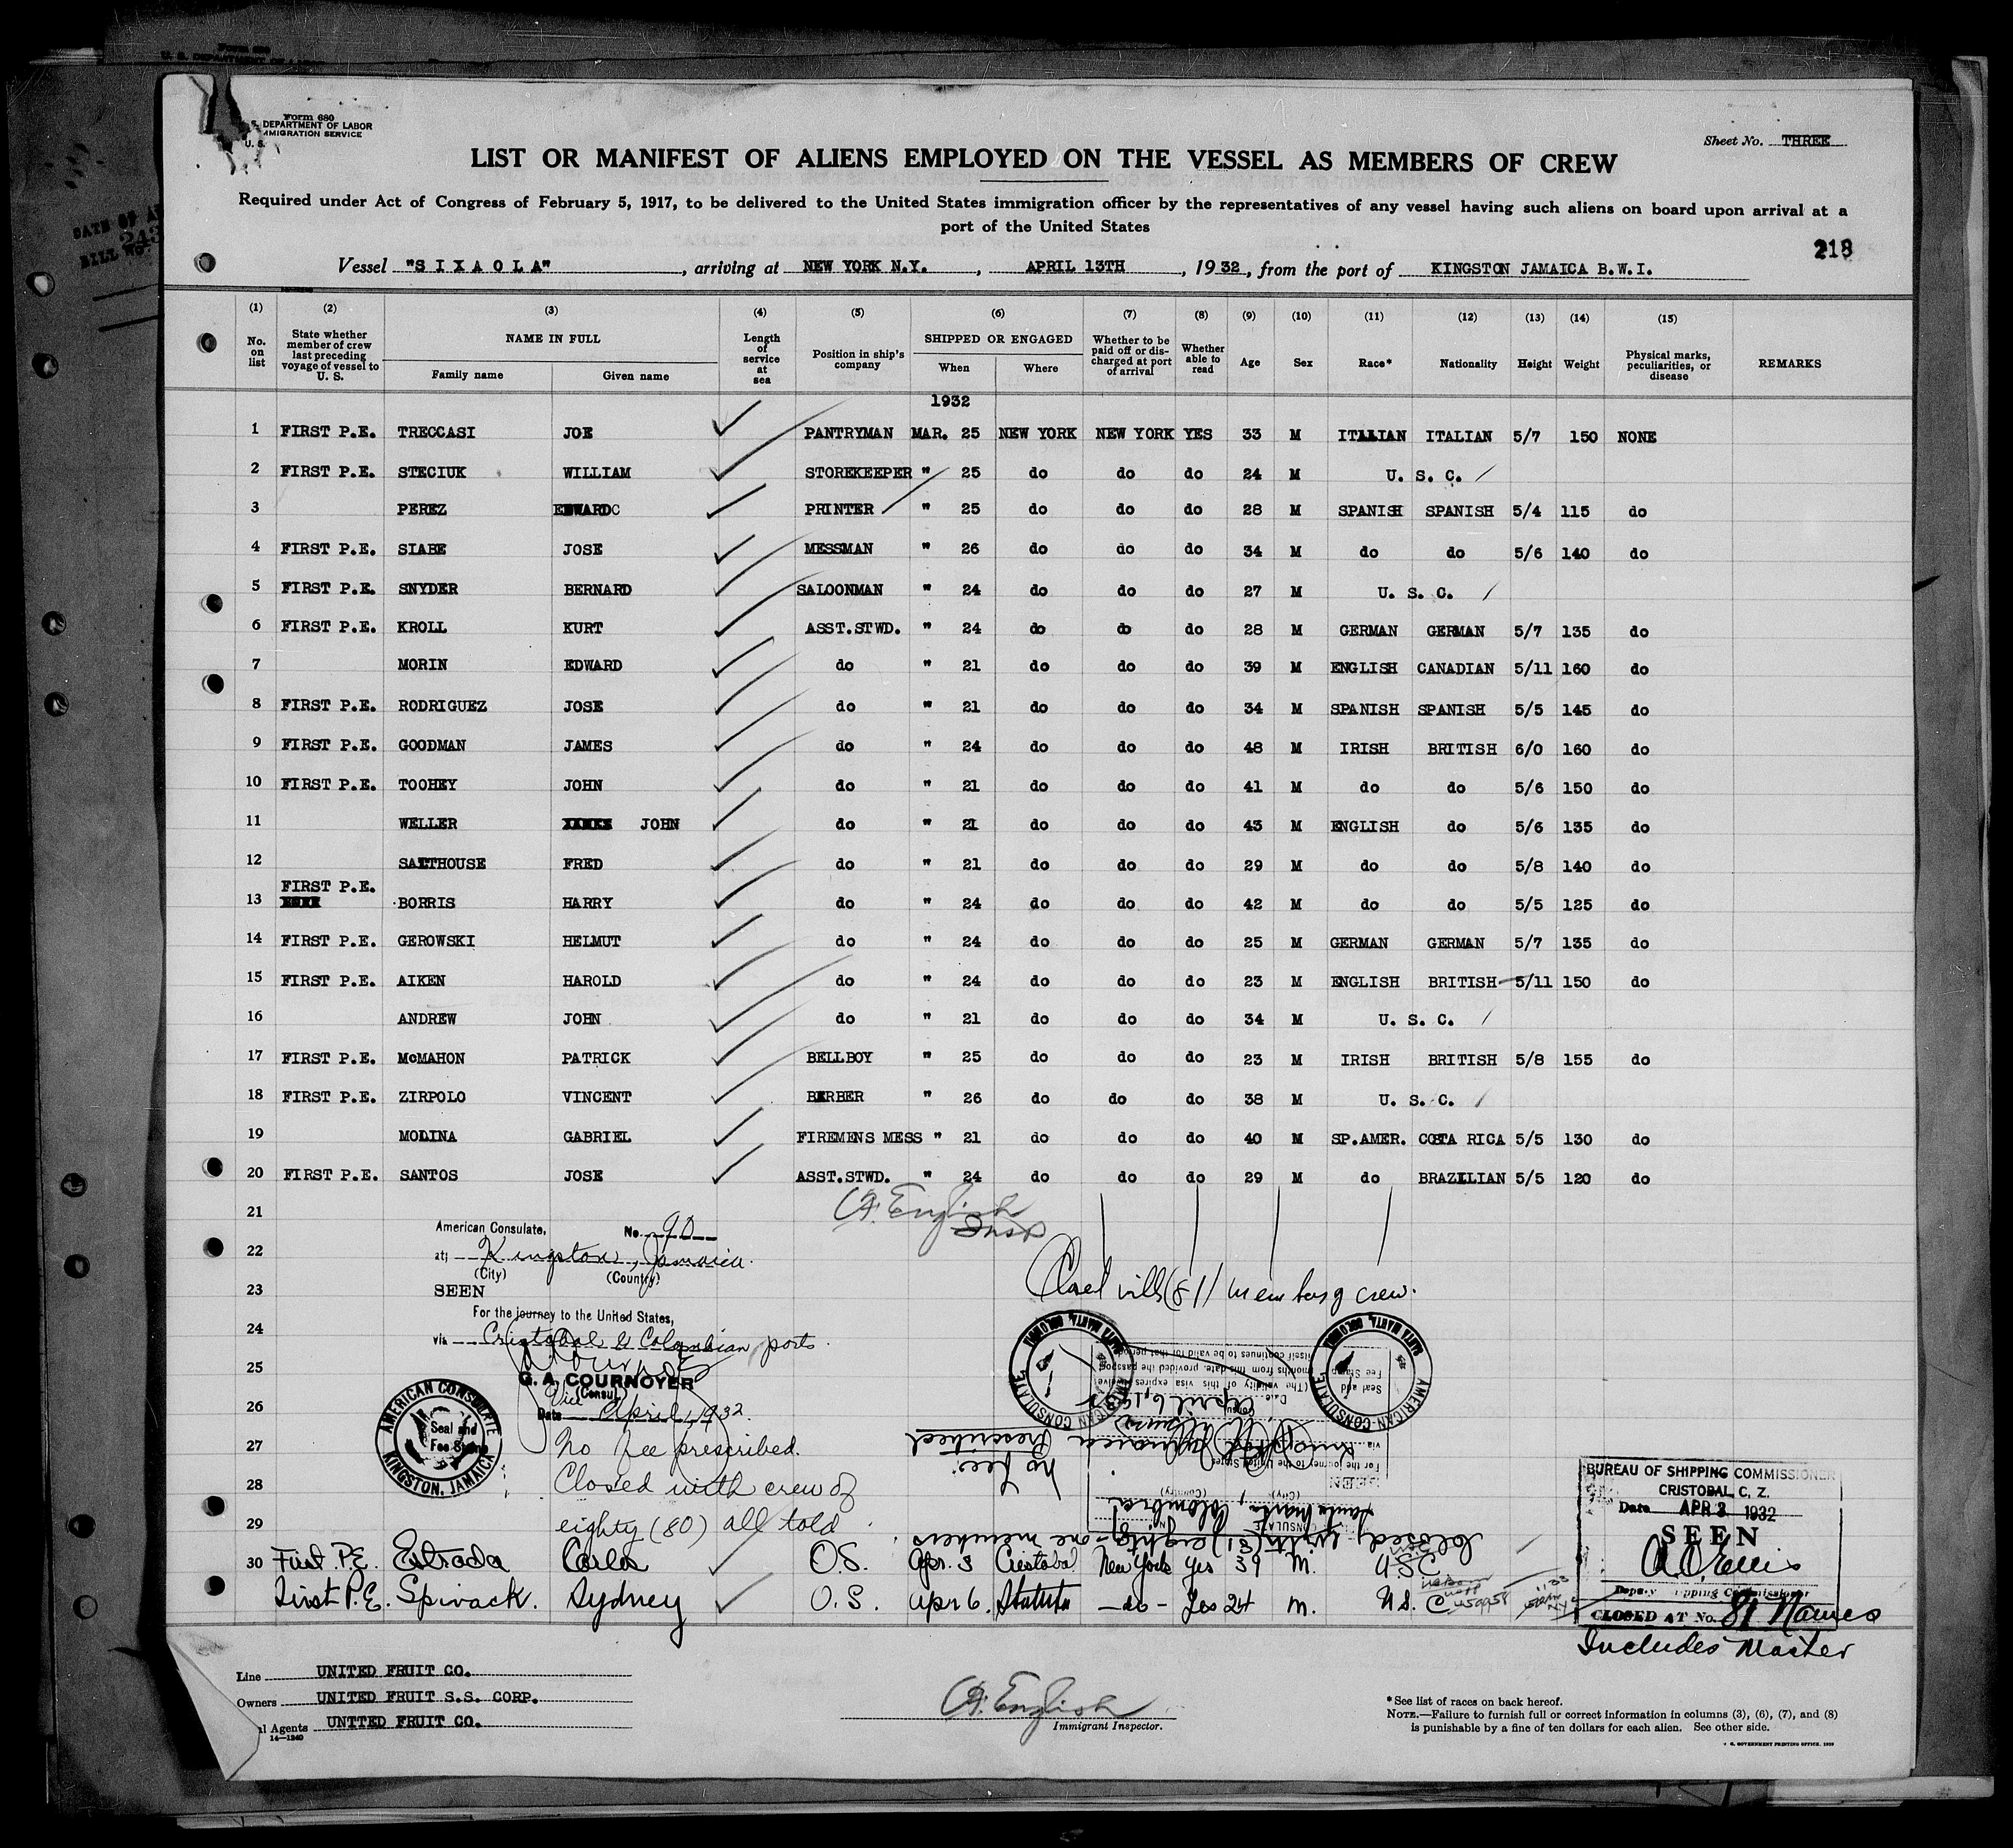 Form 680
S. DEPARTMENT OF LABOR
IMMIGRATION SERVICE
U. S.
Sheet No. THREE
LIST OR MANIFEST OF ALIENS EMPLOYED ON THE VESSEL AS MEMBERS OF CREW
Required under Act of Congress of February 5, 1917, to be delivered to the United States immigration officer by the representatives of any vessel having such aliens on board upon arrival at a
port of the United States
218
Vessel "SIXAOLA", arriving at NEW YORK N.Y., APRIL 13TH, 1932, from the port of KINGSTON JAMAICA B.W.I.
(1) (2) (3) (4) (5) (6) (7) (8) (9) (10) (11) (12) (13) (14) (15)
No. on list State whether member of crew last preceding voyage of vessel to U. S. NAME IN FULL Family name Given name Length of service at sea Position in ship's company SHIPPED OR ENGAGED When Where Whether to be paid off or discharged at port of arrival Whether able to read Age Sex Race* Nationality Height Weight Physical marks, peculiarities, or disease REMARKS
1932
1 FIRST P.E. TRECCASI JOE PANTRYMAN MAR. 25 NEW YORK NEW YORK YES 33 M ITALIAN ITALIAN 5/7 150 NONE
2 FIRST P.E. STECIUK WILLIAM STOREKEEPER " 25 do do do 24 M U. S. C.
3 PEREZ EDWARDC PRINTER " 25 do do do 28 M SPANISH SPANISH 5/4 115 do
4 FIRST P.E. SIABE JOSE MESSMAN " 26 do do do 34 M do do 5/6 140 do
5 FIRST P.E. SNYDER BERNARD SALOONMAN " 24 do do do 27 M U. S. C.
6 FIRST P.E. KROLL KURT ASST.STWD. " 24 do do do 28 M GERMAN GERMAN 5/7 135 do
7 MORIN EDWARD do " 21 do do do 39 M ENGLISH CANADIAN 5/11 160 do
8 FIRST P.E. RODRIGUEZ JOSE do " 21 do do do 34 M SPANISH SPANISH 5/5 145 do
9 FIRST P.E. GOODMAN JAMES do " 24 do do do 48 M IRISH BRITISH 6/0 160 do
10 FIRST P.E. TOOHEY JOHN do " 21 do do do 41 M do do 5/6 150 do
11 WELLER JOHN do " 21 do do do 43 M ENGLISH do 5/6 135 do
12 SALTHOUSE FRED do " 21 do do do 29 M do do 5/8 140 do
13 FIRST P.E. BORRIS HARRY do " 24 do do do 42 M do do 5/5 125 do
14 FIRST P.E. GEROWSKI HELMUT do " 24 do do do 25 M GERMAN GERMAN 5/7 135 do
15 FIRST P.E. AIKEN HAROLD do " 24 do do do 23 M ENGLISH BRITISH 5/11 150 do
16 ANDREW JOHN do " 21 do do do 34 M U. S. C.
17 FIRST P.E. McMAHON PATRICK BELLBOY " 25 do do do 23 M IRISH BRITISH 5/8 155 do
18 FIRST P.E. ZIRPOLO VINCENT BERBER " 26 do do do 38 M U. S. C.
19 MOLINA GABRIEL FIREMENS MESS " 21 do do do 40 M SP.AMER. COSTA RICA 5/5 130 do
20 FIRST P.E. SANTOS JOSE ASST.STWD. " 24 do do do 29 M do BRAZILIAN 5/5 120 do
21
English
Insp
American Consulate, No. 90
22
at Kingston, Jamaica.
(City) (Country)
23
SEEN
Closed with (81) members of crew.
For the journey to the United States,
24
via Cristobal & Colombian ports.
25
G. A. COURNOYER
Vice Consul
26
Date April 1, 1932.
AMERICAN CONSULATE
Seal and
Fee Stamp
KINGSTON, JAMAICA
27
No fee prescribed.
28
Closed with crew of
29
eighty (80) all told
AMERICAN CONSULATE
SANTA MARTA, COLOMBIA
AMERICAN CONSULATE
Seal and
Fee Stamp
SANTA MARTA, COLOMBIA
Closed with (81) eighty-one members.
CONSULATE
Santa Marta, Colombia
(City) (Country)
SEEN
For the journey to the United States
via Kingston Jamaica
No fee prescribed
Consul
Date April 6, 1932
(The validity of this visa expires twelve
months from this date, provided the passport
itself continues to be valid for that period)
30 First P.E. Estrada Carlos O.S. Apr. 3 Cristobal New York Yes 39 M. U.S.C
First P.E. Spivack. Sydney O.S. Apr 6. -do- Yes 24 M. U.S. C
BUREAU OF SHIPPING COMMISSIONER
CRISTOBAL C. Z.
Date APR 3 1932
SEEN
Deputy Shipping Commissioner
CLOSED AT No. 81 Names
Includes Master
Line UNITED FRUIT CO.
Owners UNITED FRUIT S.S. CORP.
l Agents UNITED FRUIT CO.
14—1240
English
Immigrant Inspector.
* See list of races on back hereof.
NOTE.—Failure to furnish full or correct information in columns (3), (6), (7), and (8)
is punishable by a fine of ten dollars for each alien. See other side.
U. S. GOVERNMENT PRINTING OFFICE